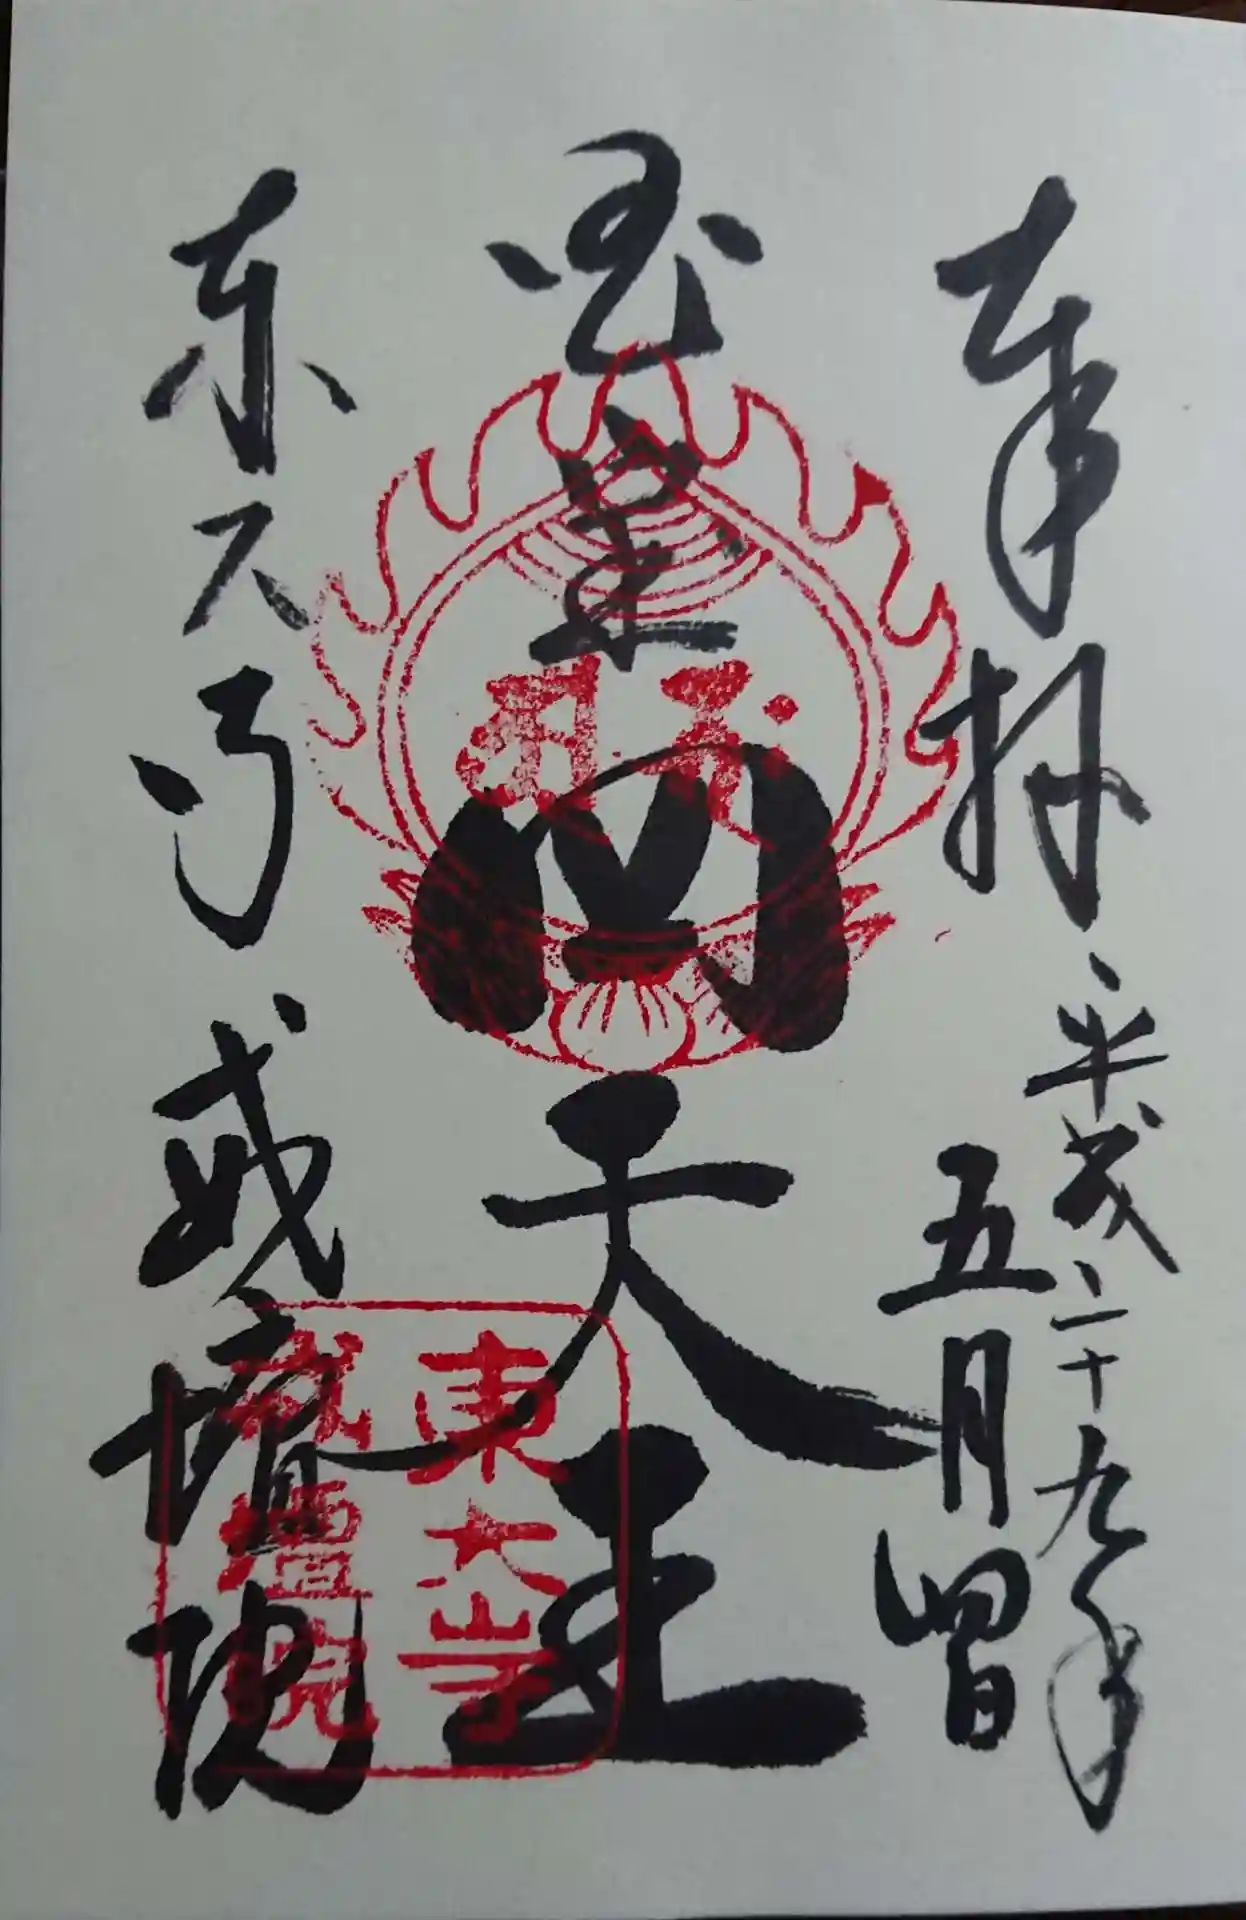 奉拝 平成二十九年
五月四日
四天王
東大寺 戒壇院
東大寺
戒壇院